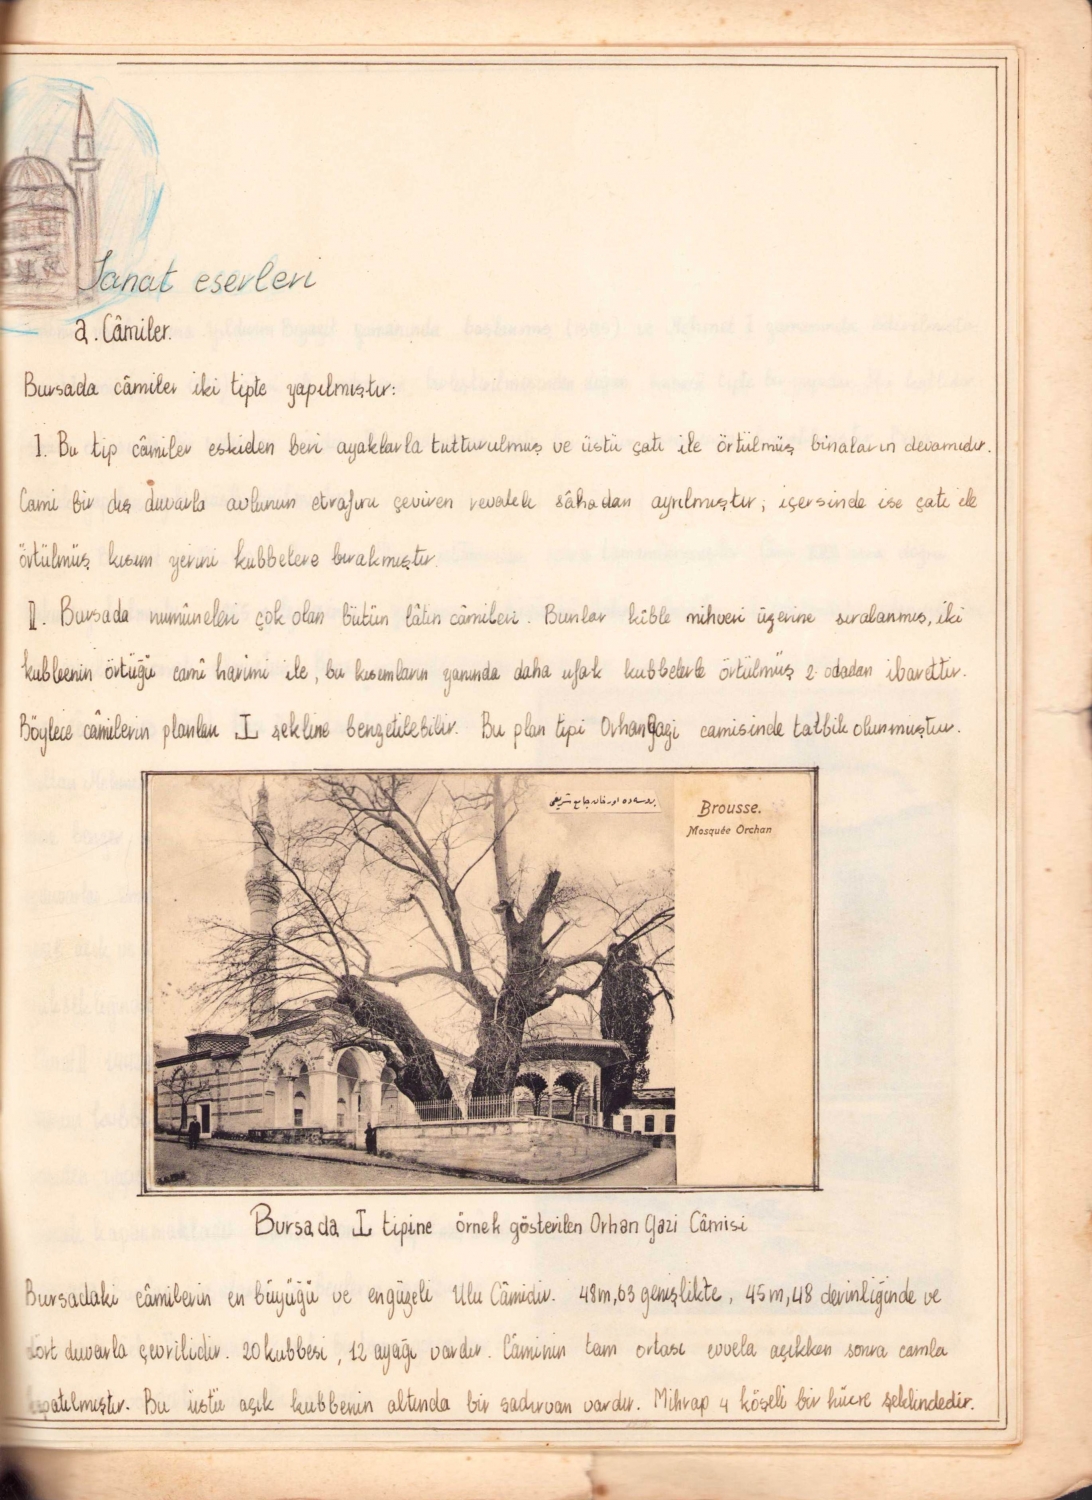 Sanat eserleri
a. Câmiler.
Bursada câmiler iki tipte yapılmıştır:
I. Bu tip câmiler eskiden beri ayaklarla tutturulmuş ve üstü çatı ile örtülmüş binaların devamıdır.
Cami bir dış duvarla avlunun etrafını çeviren revaklı sâhadan ayrılmıştır; içersinde ise çatı ile
örtülmüş kısım yerini kubbelere bırakmıştır.
II. Bursada numûneleri çok olan bütün lâtin câmileri. Bunlar kıble mihveri üzerine sıralanmış, iki
kubbenin örtüğü camî harimi ile, bu kısımların yanında daha ufak kubbelerle örtülmüş 2 odadan ibarettir.
Böylece câmilerin planları ⊥ şekline benzetilebilir. Bu plan tipi Orhangazi camisinde tatbik olunmuştur.
بروسه‌ده اورخان جامع شریفی
Brousse.
Mosquée Orchan
Bursada ⊥ tipine örnek gösterilen Orhan Gazi Câmisi
Bursadaki câmilerin en büyüğü ve engüzeli Ulu Câmidir. 48m,63 genişlikte, 45m,48 derinliğinde ve
dört duvarla çevrilidir. 20 kubbesi, 12 ayağı vardır. Câminin tam ortası evvela açıkken sonra camla
kapatılmıştır. Bu üstü açık kubbenin altında bir şadırvan vardır. Mihrap 4 köşeli bir hücre şeklindedir.